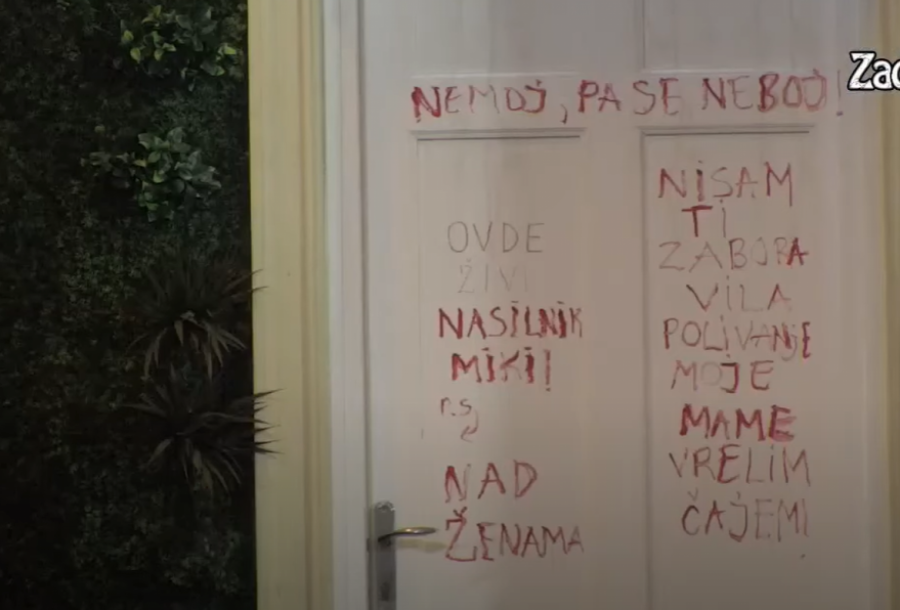 Zad
NEMOJ, PA SE NEBOJ!
OVDE
ŽIVI
NASILNIK
MIKI!
P.S.
NAD
ŽENAMA
NISAM
TI
ZABORA
VILA
POLIVANJE
MOJE
MAME
VRELIM
ČAJEM!